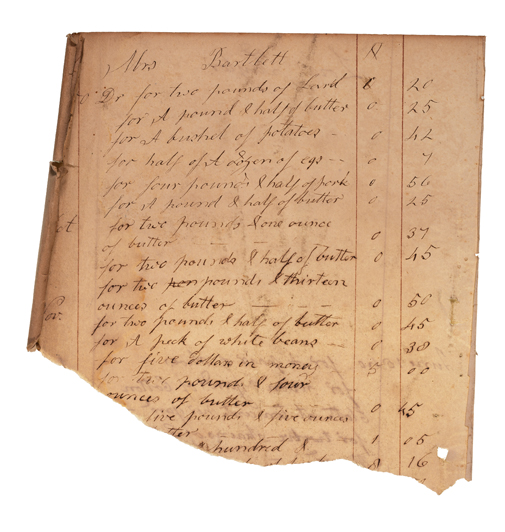 Mrs Bartlett
Dr for two pounds of Lard 0 20
for A pound & half of butter 0 25
for A bushel of potatoes - 0 42
for half of A dozen of egs -- 0 7
for four pounds & half of pork 0 56
for A pound & half of butter 0 25
for two pounds & one ounce
of butter -- 0 37
for two pounds & half of butter 0 45
for two pounds & thirteen
ounces of butter -- 0 50
for two pounds & half of butter 0 45
for A peck of white beans -- 0 38
for five dollars in money 5 00
for two pounds & four
ounces of butter 0 45
five pounds & five ounces
1 05
hundred &
16